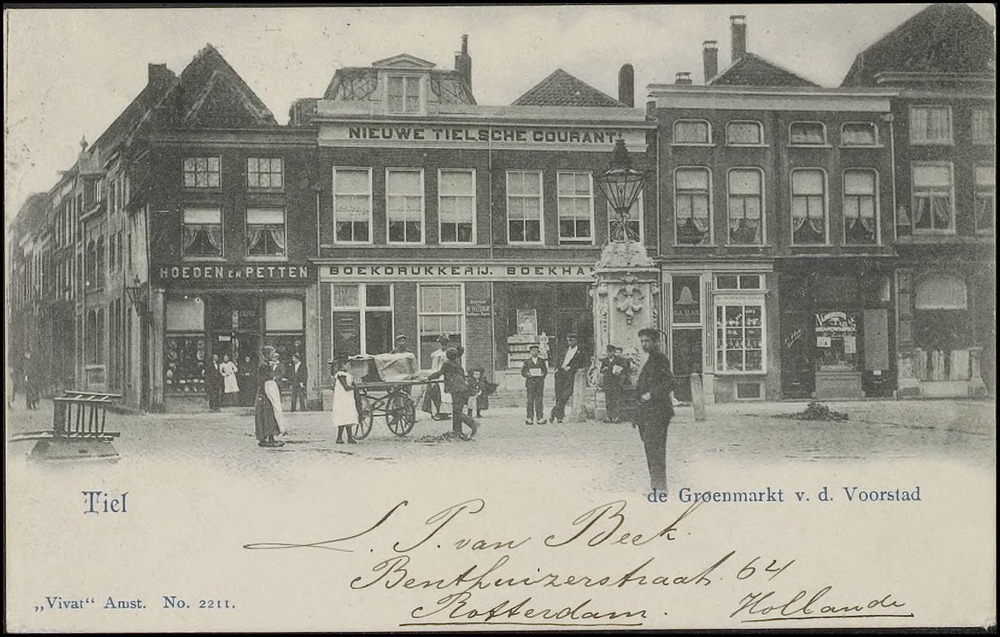 NIEUWE TIELSCHE COURANT
HOEDEN EN PETTEN
BOEKDRUKKERIJ. BOEKHA
Tiel
de Groenmarkt v. d. Voorstad
L. P. van Beek.
Benthuizerstraat. 64
Rotterdam. Hollande.
„Vivat“ Amst. No. 2211.